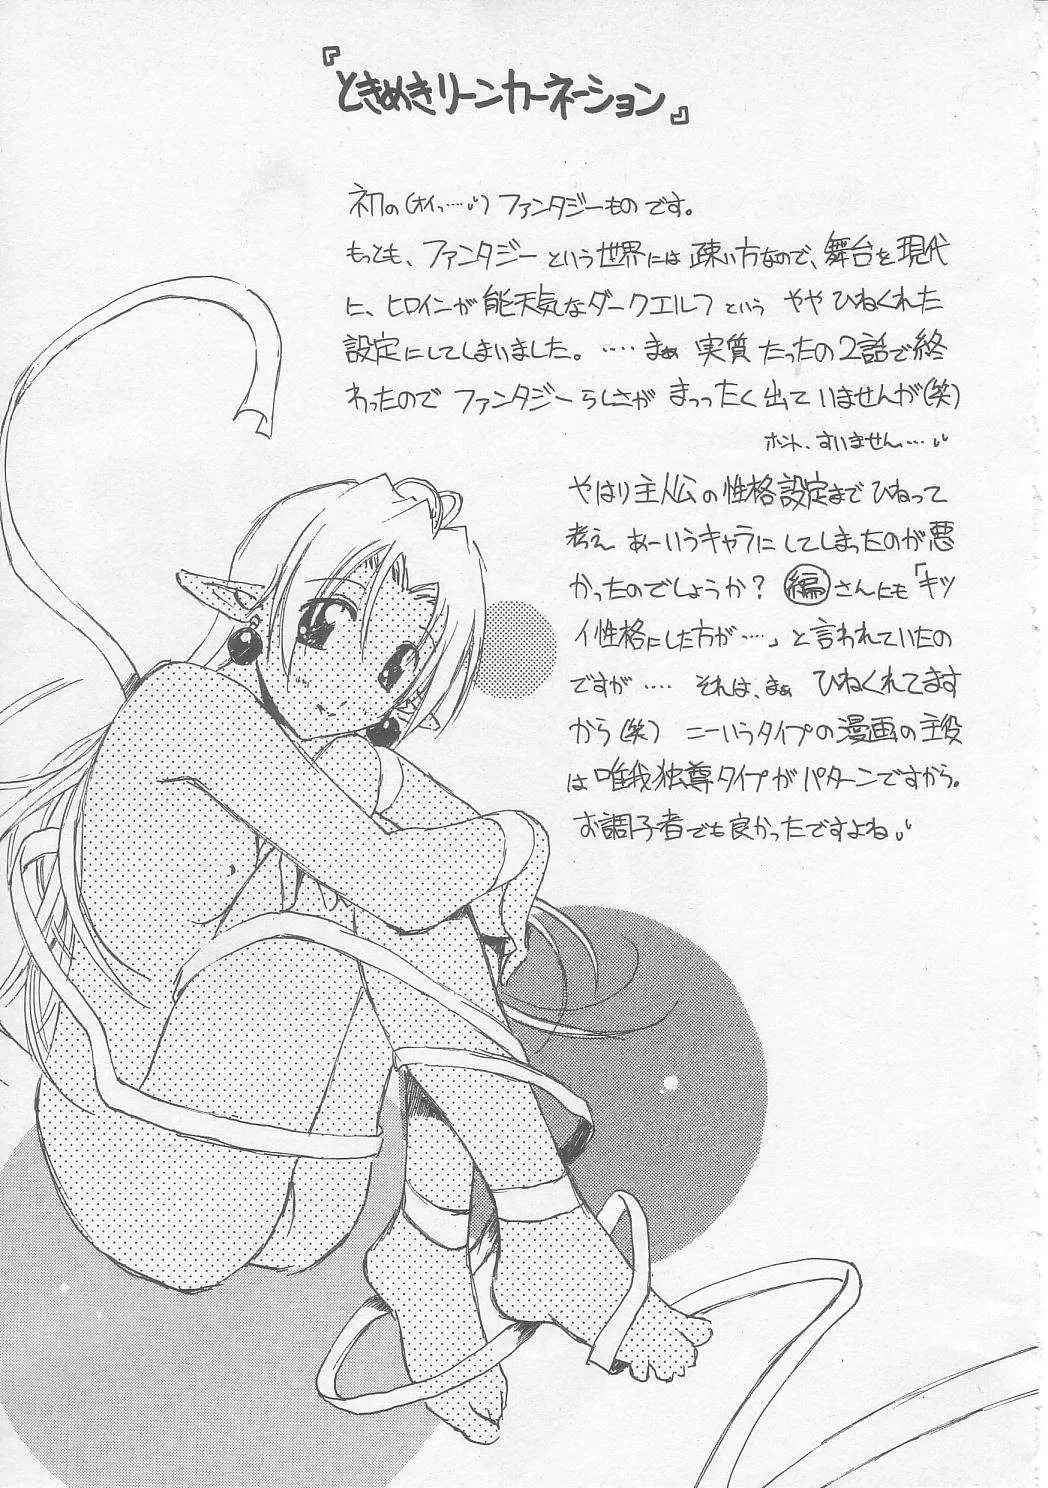 『ときめきリーンカーネーション』
初の(オイっ……) ファンタジーものです。
もっとも、ファンタジーという世界には疎い方なので、舞台を現代
に、ヒロインが能天気なダークエルフという ややひねくれた
設定にしてしまいました。……まぁ 実質たったの2話で終
わったので ファンタジーらしさが まっったく出ていませんが(笑)
ホント、すいません…
やはり主人公の性格設定までひねって
考え あーいうキャラにしてしまったのが悪
かったのでしょうか? 編さんにも「キツ
イ性格にした方が…」と言われていたの
ですが…… それは、まぁ ひねくれてます
から(笑) こーいうタイプの漫画の主役
は唯我独尊タイプがパターンですから。
お調子者でも良かったですよね